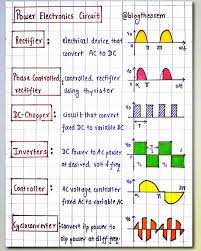 Power Electronics Circuit
@bigtheorem
Rectifier:
electrical device that
convert AC to DC
Phase Controlled
rectifier:
controlled rectifier
using thyristor
DC-Chopper:
Circuit that convert
fixed DC to variable DC
Inverters:
DC Power to AC power
at desired volt & freq.
Controller:
AC voltage controller
fixed AC to variable AC
Cycloconverter:
Convert i/p power to
o/p power at diff freq.